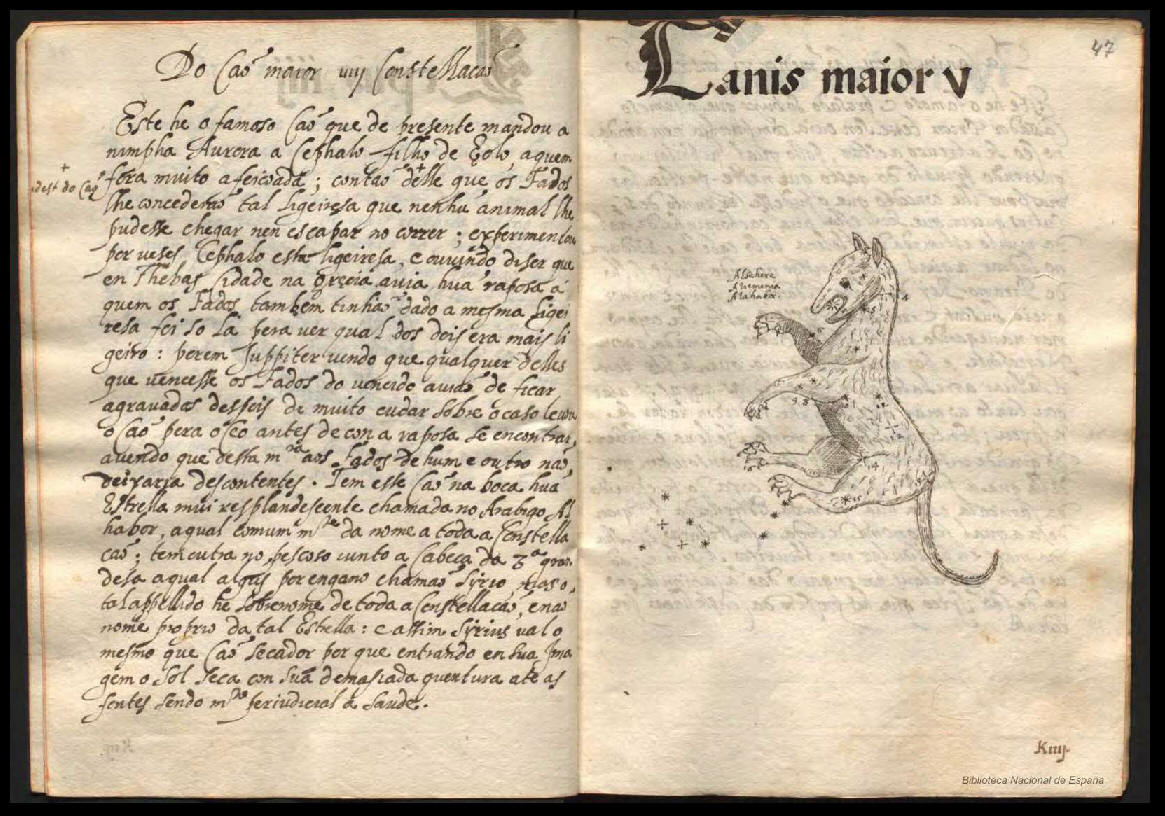 Do Caõ maior iiij Constellacaõ
Este he o famoso Caõ que de presente mandou a
nimpha Aurora a Cephalo filho de Eolo a quem
fora muito afeicoada; contaõ delle que os Fados
+
dest do Caõ
lhe concederaõ tal ligeiresa que nenhũ animal lhe
pudesse chegar nen escapar no correr; experimentou
per veses Cephalo esta ligeiresa, e ouvindo diser que
en Thebas Cidade na Greçia auia huã raposa á
quem os Fados tambem tinhaõ dado a mesma Ligei
resa foi so la pera ver qual dos dois era mais li
geiro: porem Juppiter vendo que qualquer delles
que vencesse os Fados do vencido auiaõ de ficar
agravados despois de muito cudar sobre o caso levou
o Caõ pera o Ceo antes de con a raposa se encontrar,
avendo que desta mra aos Fados de hum e outro naõ
deixaria descontentes. Tem este Caõ na boca huã
Estrella mui resplandescente chamada no Arabigo Al
habor, a qual comum mte da nome a toda a Constella
caõ; tem outra no pescoso iunto a Cabeça da 3ª gran
desa a qual algũs por engano chamaõ Syrio, Mas o
tal appellido he sobrenome de toda a Constellacaõ, e naõ
nome proprio da tal Estrella: e assim Syrius val o
mesmo que Caõ secador por que entrando en sua Ima
gem o Sol seca con sua demasiada quentura ate as
fontes sendo mto perjudicial á saude.
Canis maior V
47
Alahore
Kiiij
Biblioteca Nacional de España